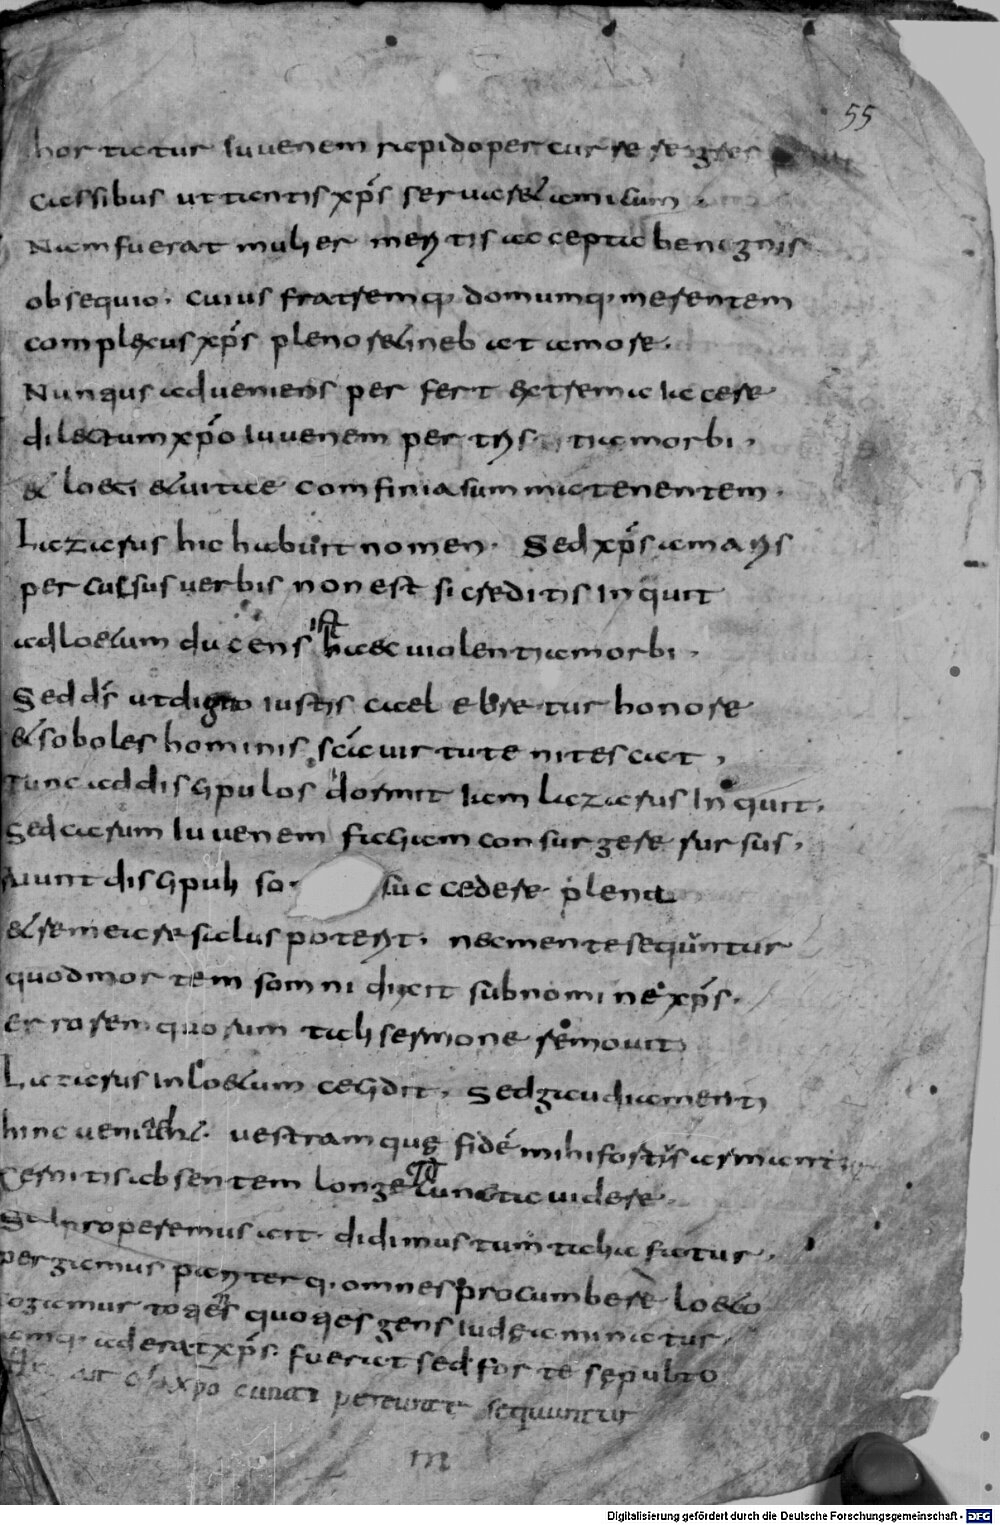 55
hortatur iuuenem rapido percurrere gresser
cassibus ut tantis xp̄s seruaret amicum.
Nam fuerat mulier mentis accepta benignis
obsequio. cuius fratremq. domumq. merentem
complexus xp̄s pleno retinebat amore.
Nunqus adueniens perfert extrema iacere
dilectum xp̄o iuuenem per tris tia morbi.
& loeti & uitae comfinia summa tenentem.
Lazarus hic habuit nomen. Sed xp̄s amans
percussus uerbis non est si creditis inquit
ad loetum ducens ist haec uiolentia morbi.
Sed ds̄ ut digno iustis caelebretur honore
& soboles hominis scā uirtute nitescat.
Tunc ad discipulos dormit iam lazarus inquit.
Sed carum iuuenem faciam consurgere rursus.
Aiunt discipuli so succedere plena
& remeare salus potent. nec mente sequntur
quod mortem somni dixit sub nomine xp̄s.
Errorem quorum tali sermone remouit
Lazarus in loetum cecidit. Sed gaudia menti
hinc ueni vestramque fidē mihi fortis armant
Cernitis absentem longe cuncta uidere.
Si properemus ait. didimus tum talia fatur.
pergamus pariterq. omnes procumbere loeto
cogamur toqes quoqes gens iudea minatur.
iamq. aderat xp̄s. fuerat sed forte sepulto
xp̄o cunati pereurat sequuntur
m
Digitalisierung gefördert durch die Deutsche Forschungsgemeinschaft - DFG